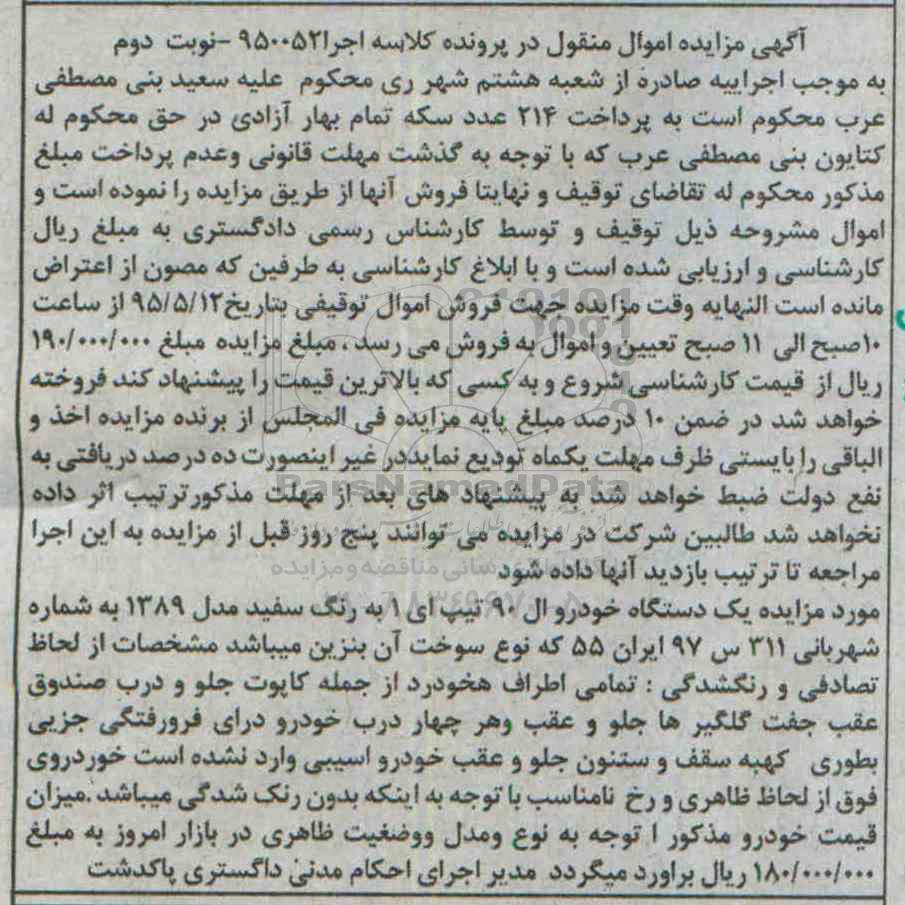 آگهی مزایده اموال منقول در پرونده کلاسه اجرا۹۵۰۰۵۲ -نوبت دوم
به موجب اجراییه صادره از شعبه هشتم شهر ری محکوم علیه سعید بنی مصطفی
عرب محکوم است به پرداخت ۲۱۴ عدد سکه تمام بهار آزادی در حق محکوم له
کتایون بنی مصطفی عرب که با توجه به گذشت مهلت قانونی وعدم پرداخت مبلغ
مذکور محکوم له تقاضای توقیف و نهایتا فروش آنها از طریق مزایده را نموده است و
اموال مشروحه ذیل توقیف و توسط کارشناس رسمی دادگستری به مبلغ ریال
کارشناسی و ارزیابی شده است و با ابلاغ کارشناسی به طرفین که مصون از اعتراض
مانده است النهایه وقت مزایده جهت فروش اموال توقیفی بتاریخ۹۵/۵/۱۲ از ساعت
۱۰صبح الی ۱۱ صبح تعیین و اموال به فروش می رسد ، مبلغ مزایده مبلغ ۱۹۰/۰۰۰/۰۰۰
ریال از قیمت کارشناسی شروع و به کسی که بالاترین قیمت را پیشنهاد کند فروخته
خواهد شد در ضمن ۱۰ درصد مبلغ پایه مزایده فی المجلس از برنده مزایده اخذ و
الباقی را بایستی ظرف مهلت یکماه تودیع نمایددر غیر اینصورت ده درصد دریافتی به
نفع دولت ضبط خواهد شد به پیشنهاد های بعد از مهلت مذکورترتیب اثر داده
نخواهد شد طالبین شرکت در مزایده می توانند پنج روز قبل از مزایده به این اجرا
مراجعه تا ترتیب بازدید آنها داده شود
مورد مزایده یک دستگاه خودرو ال ۹۰ تیپ ای ۱ به رنگ سفید مدل ۱۳۸۹ به شماره
شهربانی ۳۱۱ س ۹۷ ایران ۵۵ که نوع سوخت آن بنزین میباشد مشخصات از لحاظ
تصادفی و رنگشدگی : تمامی اطراف هخودرد از جمله کاپوت جلو و درب صندوق
عقب جفت گلگیر ها جلو و عقب وهر چهار درب خودرو درای فرورفتگی جزیی
بطوری کهبه سقف و ستنون جلو و عقب خودرو اسیبی وارد نشده است خوردروی
فوق از لحاظ ظاهری و رخ نامناسب با توجه به اینکه بدون رنک شدگی میباشد .میزان
قیمت خودرو مذکور ا توجه به نوع ومدل ووضغیت ظاهری در بازار امروز به مبلغ
۱۸۰/۰۰۰/۰۰۰ ریال براورد میگردد مدیر اجرای احکام مدنی داگستری پاکدشت
ParsNamadData